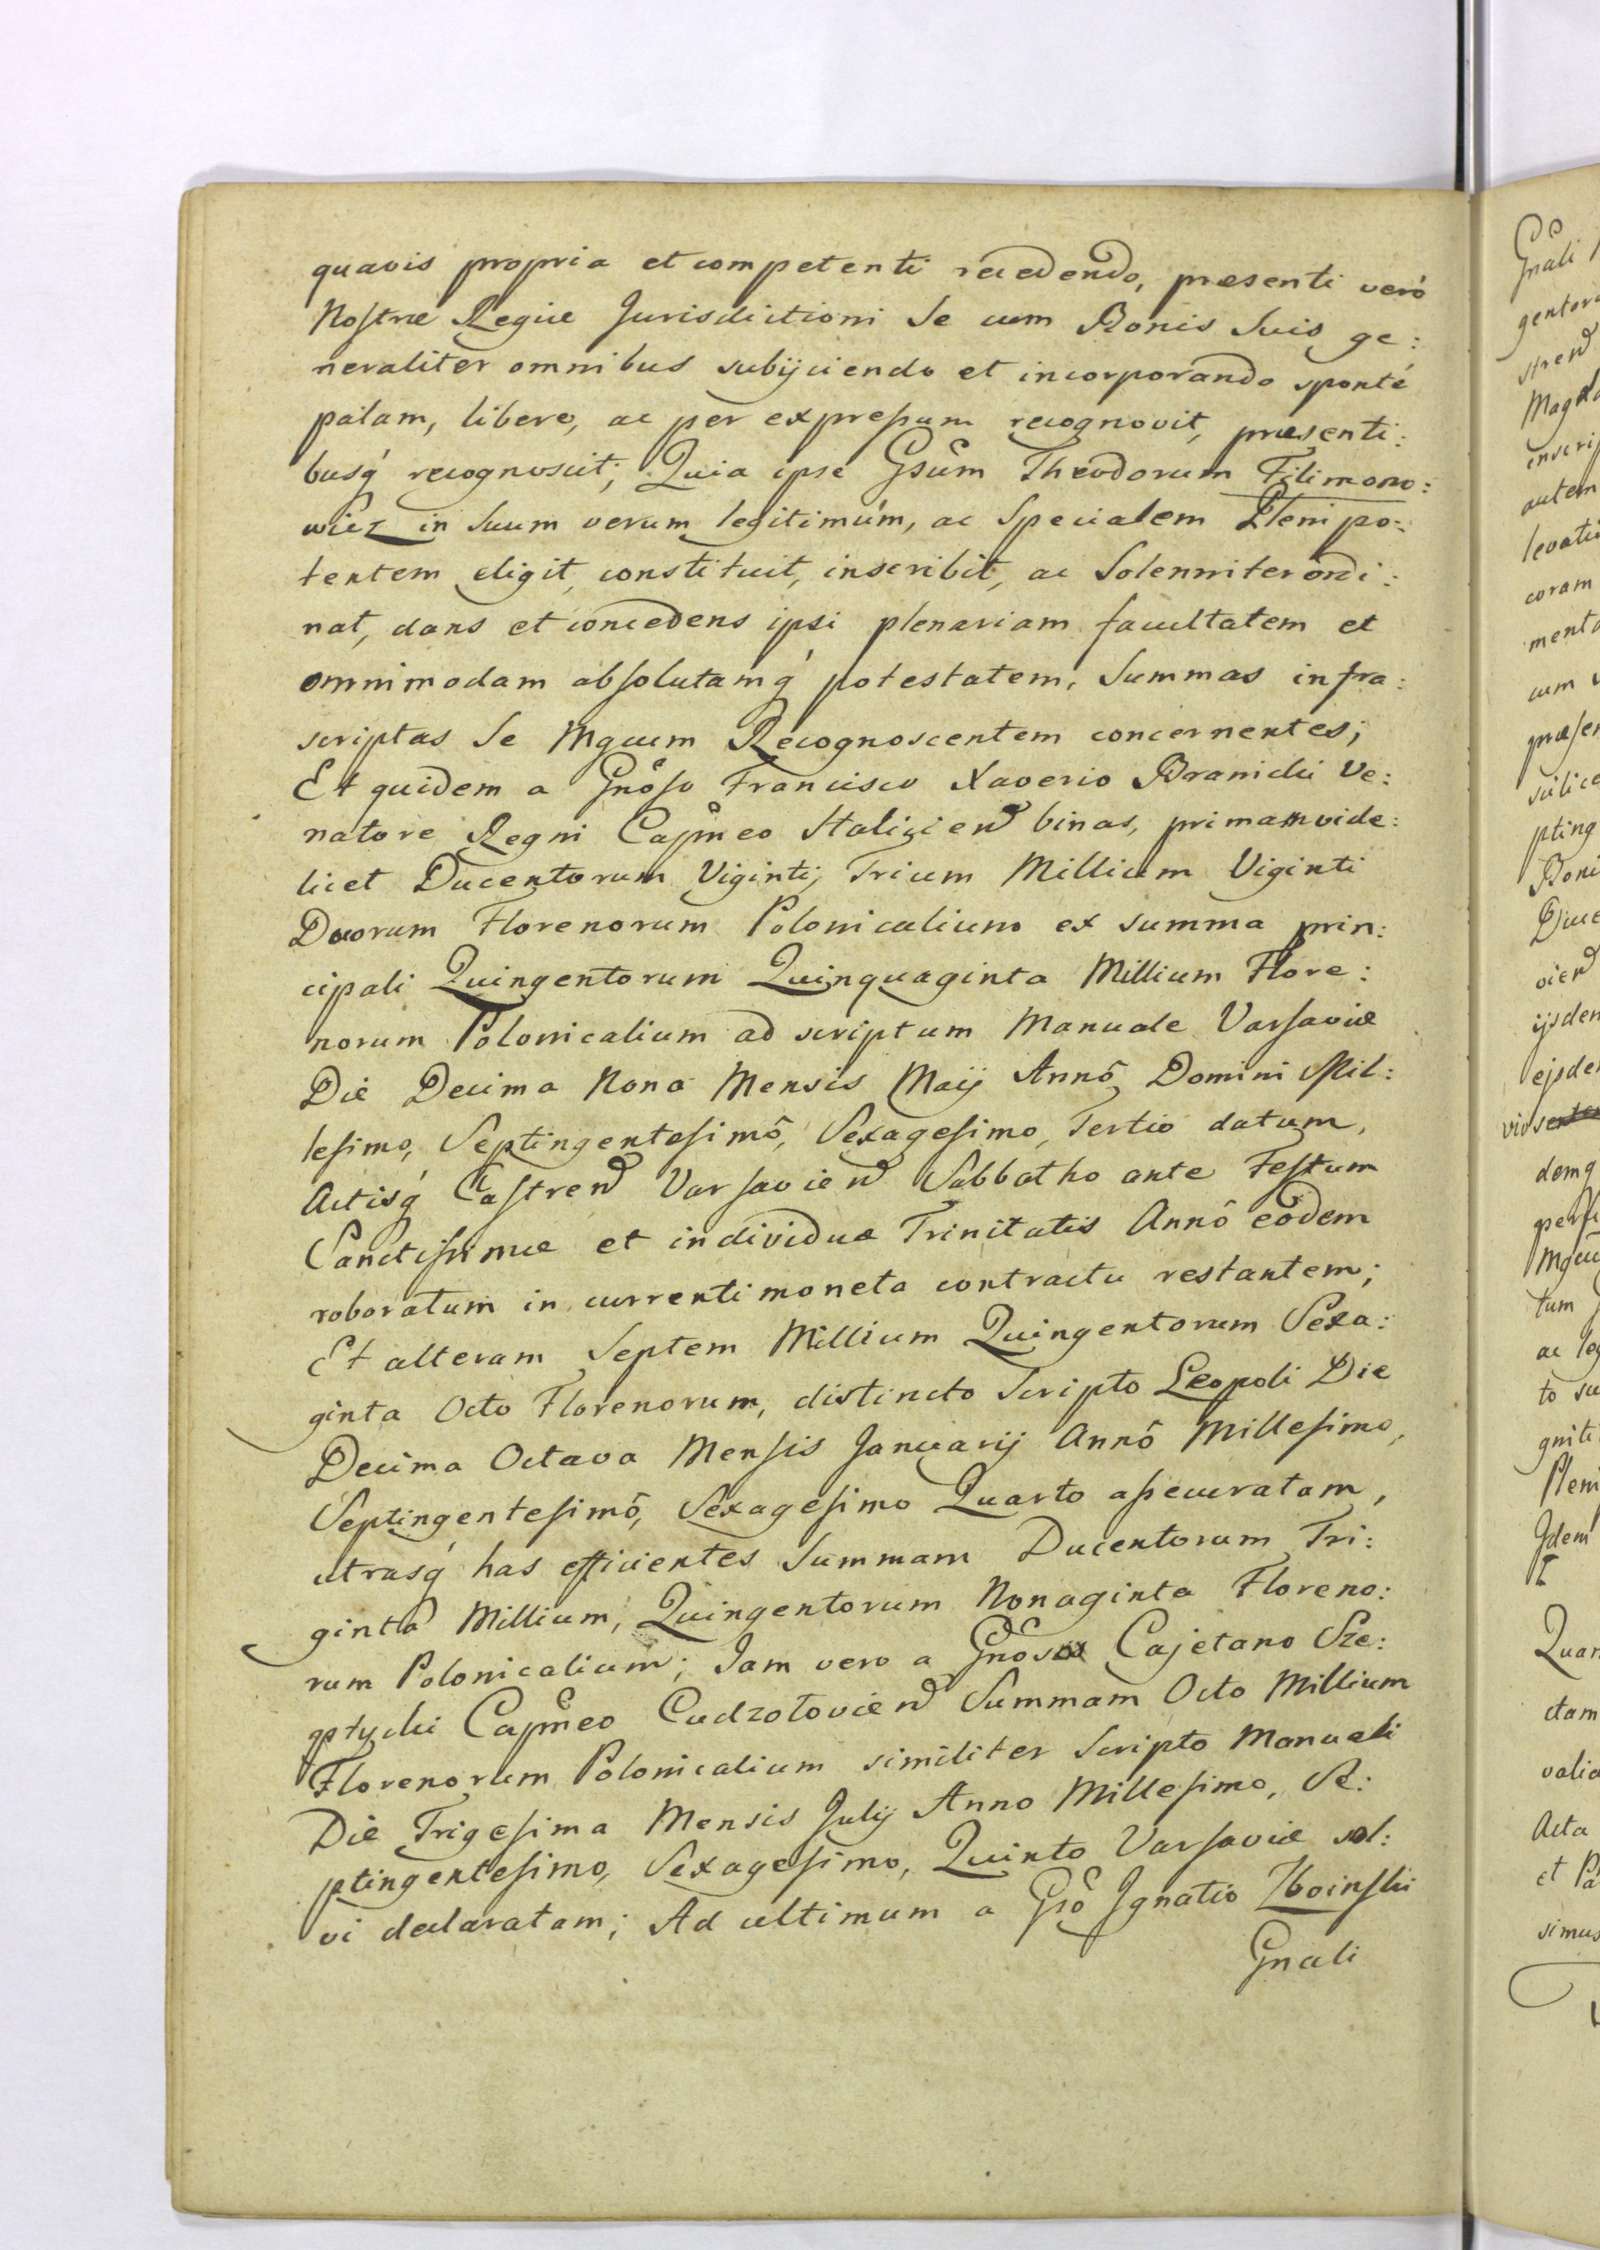 quavis propria et competenti recedendo, præsenti verò
Nostræ Regiæ Jurisdictioni Se cum Bonis Suis ge:
neraliter omnibus subijciendo et incorporando sponté
palam, libere, ac per expressum recognovit, præsenti:
busq́ recognoscit; Quia ipse Gsũm Theodorum Filimono:
wicz in Suum verum legitimúm, ac Specialem Plenipo:
tentem eligit, constituit, inscribit, ac Solenniter ordi:
nat, dans et concedens ipsi plenariam facultatem et
omnimodam absolutamq́ potestatem, Summas infra:
scriptas Se Mgcum Recognoscentem concernentes;
Et quidem a Gnõso Francisco Xaverio Branicki Ve:
natore Regni Capñeo Halicien̄ binas, primam vide:
licet Ducentorum Viginti, Trium Millium Viginti
Duorum Florenorum Polonicalium ex summa prin:
cipali Quingentorum Quinquaginta Millium Flore:
norum Polonicalium ad scriptum Manuale Varsaviæ
Die Decima Nona Mensis Maij Annô Domini Mil:
lesimo, Septingentesimô, Sexagesimo, Tertio datum,
Actisq́ Castren̄ Varsavien̄ Sabbatho ante Festum
Sanctissimæ et individuæ Trinitatis Annô eôdem
roboratum in currenti moneta contractu restantem;
Et alteram Septem Millium Quingentorum Sexa:
ginta Octo Florenorum, distincto Scripto Leopoli Die
Decima Octava Mensis Januarij Annô Millesimo,
Septingentesimô, Sexagesimo Quarto assecuratam,
utrasq́ has efficientes Summam Ducentorum Tri:
ginta Millium, Quingentorum Nonaginta Floreno:
rum Polonicalium; Jam vero a Gnõso Cajetano Sze:
ptycki Capñeo Cudzołovien̄ Summam Octo Millium
Florenorum Polonicalium similiter Scripto Manuali
Die Trigesima Mensis Julij Anno Millesimo, Se:
ptingentesimo, Sexagesimo, Quinto Varsaviæ sol:
vi declaratam; Ad ultimum a Gsõ Ignatio Zboinski
Gnali